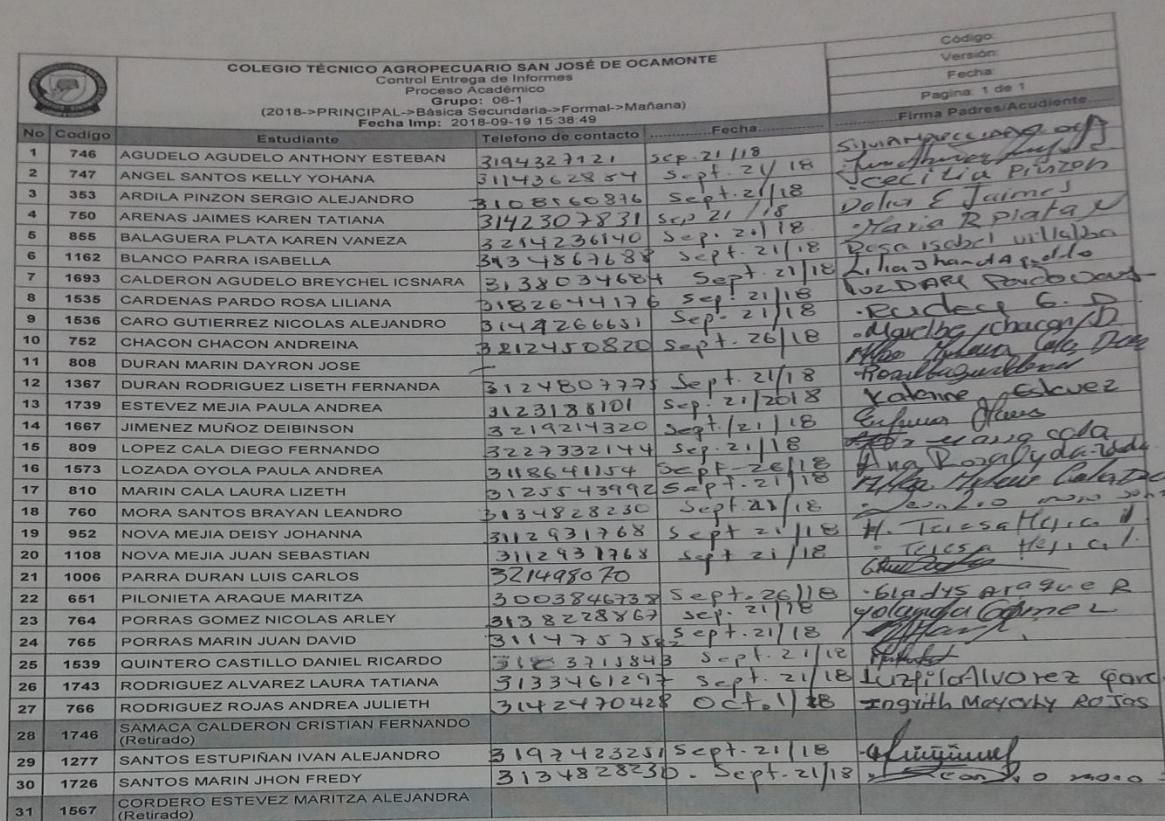 Código:
Versión:
Fecha:
Pagina: 1 de 1
COLEGIO TÉCNICO AGROPECUARIO SAN JOSÉ DE OCAMONTE
Control Entrega de Informes
Proceso Académico
Grupo: 06-1
(2018->PRINCIPAL->Básica Secundaria->Formal->Mañana)
Fecha Imp: 2018-09-19 15:38:49
No Codigo Estudiante Telefono de contacto Fecha Firma Padres/Acudiente
1 746 AGUDELO AGUDELO ANTHONY ESTEBAN 3194327121 Sep. 21/18
2 747 ANGEL SANTOS KELLY YOHANA 3114362854 Sept. 21/18
3 353 ARDILA PINZON SERGIO ALEJANDRO 3108560876 Sept. 21/18 Cecilia Pinzon
4 750 ARENAS JAIMES KAREN TATIANA 3142307831 Sep 21/18 E Jaimes
5 855 BALAGUERA PLATA KAREN VANEZA 3214236140 Sep. 21/18 Maria R Plata
6 1162 BLANCO PARRA ISABELLA Sept. 21/18 Rosa isabel villalba
7 1693 CALDERON AGUDELO BREYCHEL ICSNARA 3138034684 Sept. 21/18
8 1535 CARDENAS PARDO ROSA LILIANA 3182644176 Sep. 21/18
9 1536 CARO GUTIERREZ NICOLAS ALEJANDRO Sep. 21/18
10 752 CHACON CHACON ANDREINA 3212450820 Sept. 26/18 chacon
11 808 DURAN MARIN DAYRON JOSE
12 1367 DURAN RODRIGUEZ LISETH FERNANDA 3124807775 Sept. 21/18
13 1739 ESTEVEZ MEJIA PAULA ANDREA 3123188101 Sep. 21/2018 Estevez
14 1667 JIMENEZ MUÑOZ DEIBINSON 3219214320 Sept. 21/18
15 809 LOPEZ CALA DIEGO FERNANDO 3227332144 Sep. 21/18 cala
16 1573 LOZADA OYOLA PAULA ANDREA 3118641154 Sept-26/18 Ana
17 810 MARIN CALA LAURA LIZETH 3125543992 Sept. 21/18
18 760 MORA SANTOS BRAYAN LEANDRO 3134828230 Sept. 21/18
19 952 NOVA MEJIA DEISY JOHANNA 3112931768 Sept 21/18 Teresa Mejia
20 1108 NOVA MEJIA JUAN SEBASTIAN 3112931768 Sept 21/18 Teresa Mejia
21 1006 PARRA DURAN LUIS CARLOS 321498070
22 651 PILONIETA ARAQUE MARITZA 3003846738 Sept. 26/18 Gladys Araque R
23 764 PORRAS GOMEZ NICOLAS ARLEY 3138228867 Sep. 21/18 Yolanda Gómez
24 765 PORRAS MARIN JUAN DAVID Sept. 21/18
25 1539 QUINTERO CASTILLO DANIEL RICARDO Sept. 21/18
26 1743 RODRIGUEZ ALVAREZ LAURA TATIANA 3133461297 Sept. 21/18 Luzpila Alvarez Garc
27 766 RODRIGUEZ ROJAS ANDREA JULIETH 3142470428 Oct. 1/18 Ingrith Mayorly Rojas
28 1746 SAMACA CALDERON CRISTIAN FERNANDO
(Retirado)
29 1277 SANTOS ESTUPIÑAN IVAN ALEJANDRO 3197423251 Sept. 21/18
30 1726 SANTOS MARIN JHON FREDY 3134828230. Sept. 21/18
31 1567 CORDERO ESTEVEZ MARITZA ALEJANDRA
(Retirado)